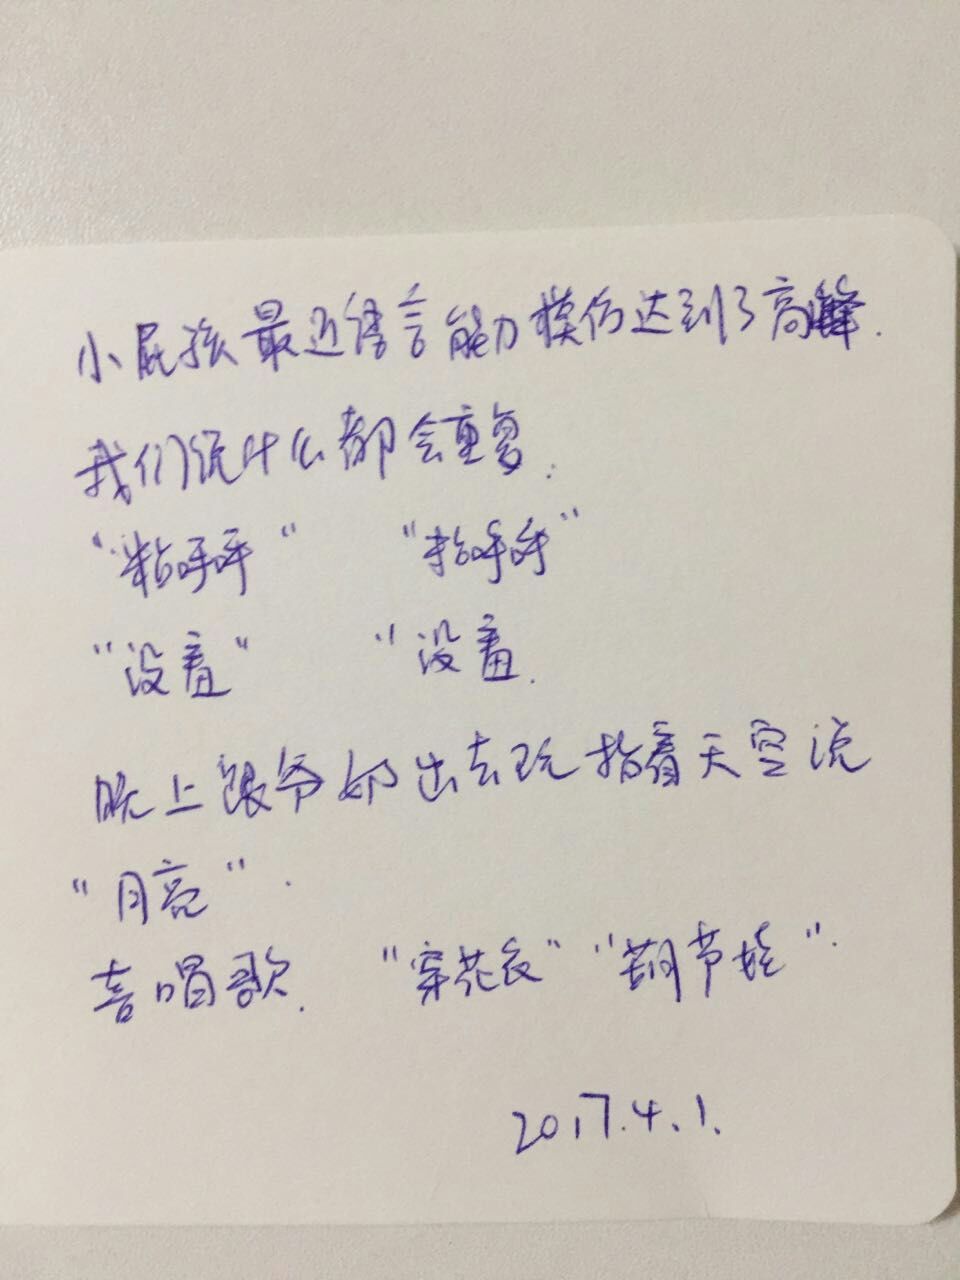 小屁孩最近语言能力模仿达到了高峰.
我们说什么都会重复.
“粘呼呼” “粘呼呼”
“没羞” “没羞.
晚上跟爷奶出去玩指着天空说
“月亮”.
喜唱歌. “穿花衣” “葫节娃”.
2017.4.1.